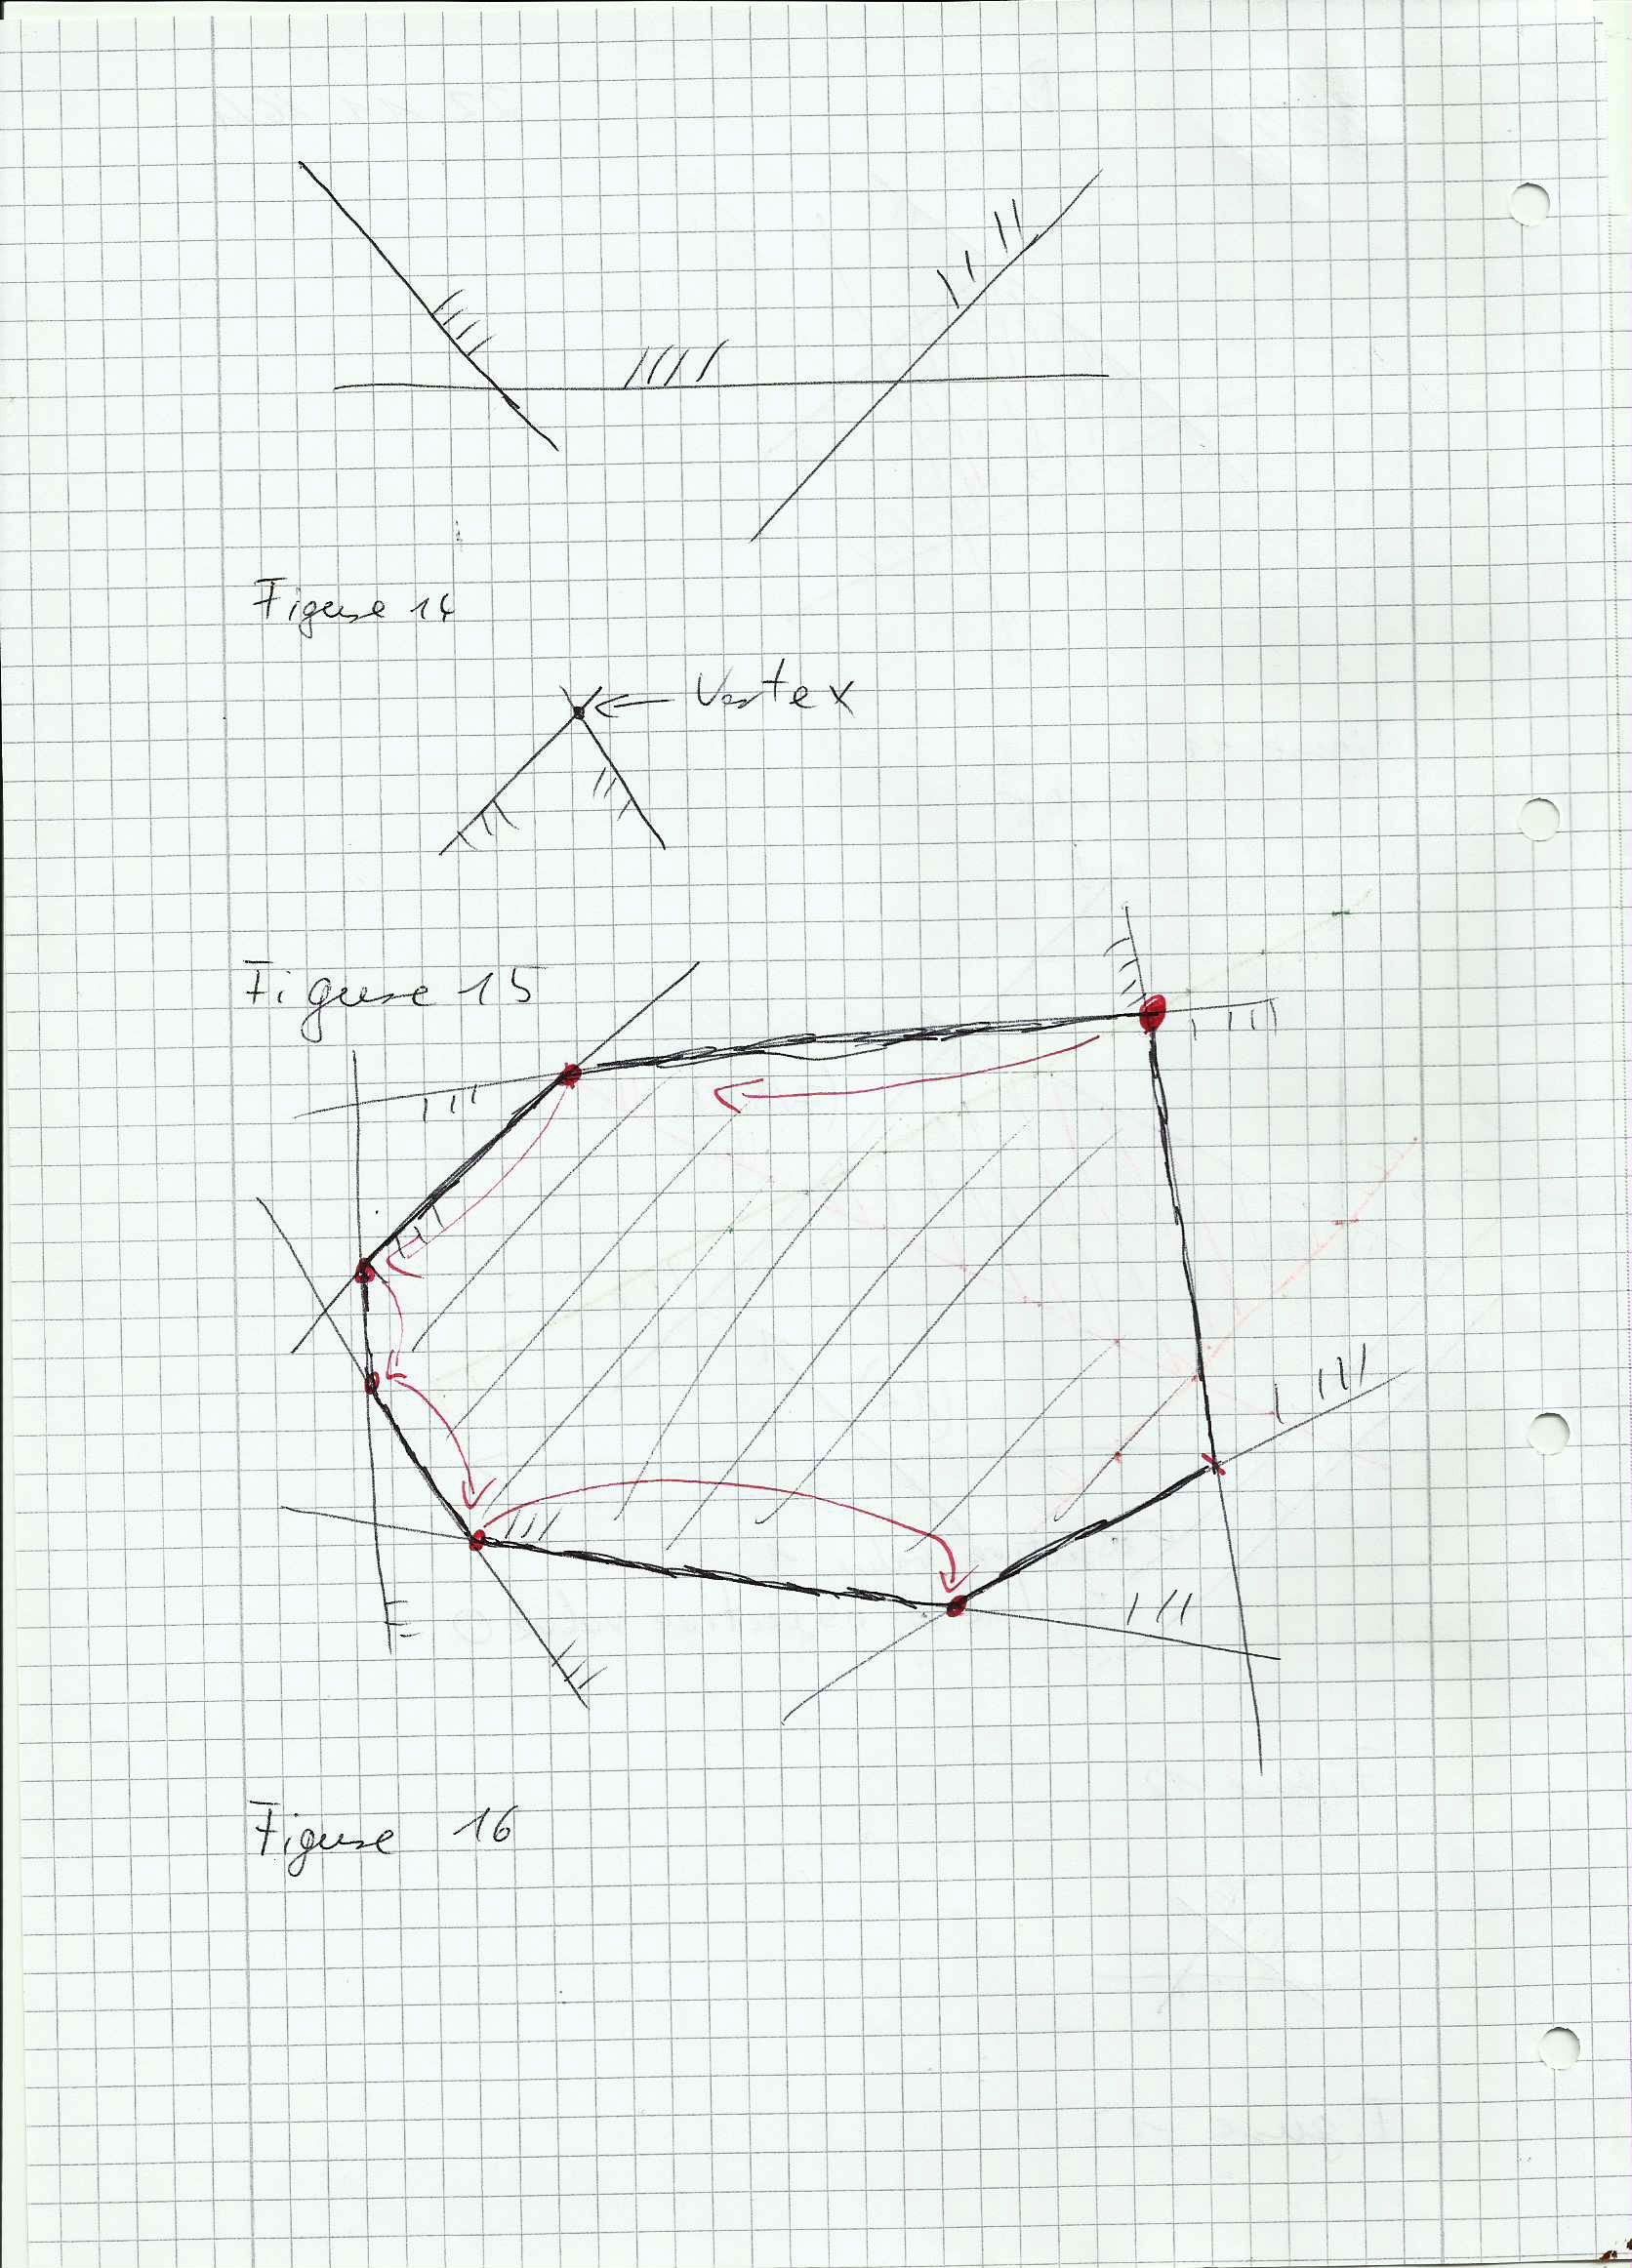 Figure 14
Vertex
Figure 15
Figure 16